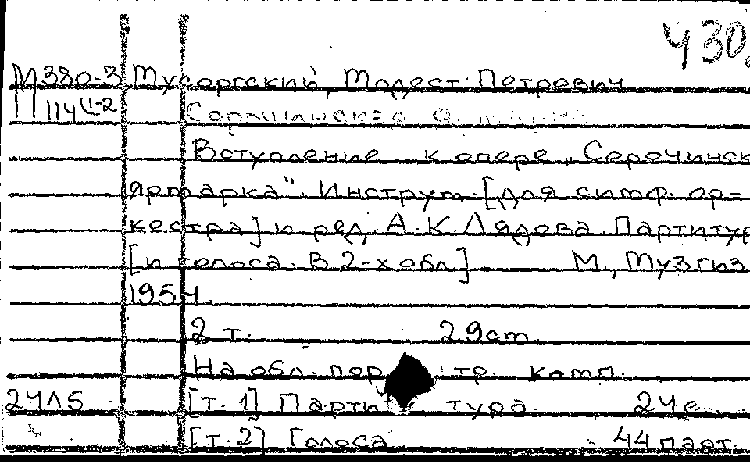 430
М380-3 Мусоргский, Модест Петрович
П114 II-2 Сорочинская ярмарка
Вступление к опере „Сорочинск
ярмарка". Инструм. [для симф. ор-
кестра] и ред. А.К Лядова. Партитур
[и голоса. В 2-х обл.] М., Музгиз
1954.
2 т. 29 см.
На обл. портр. комп.
24л5 [т. 1] Партитура 24 с.
[т. 2] Голоса 44 парт.